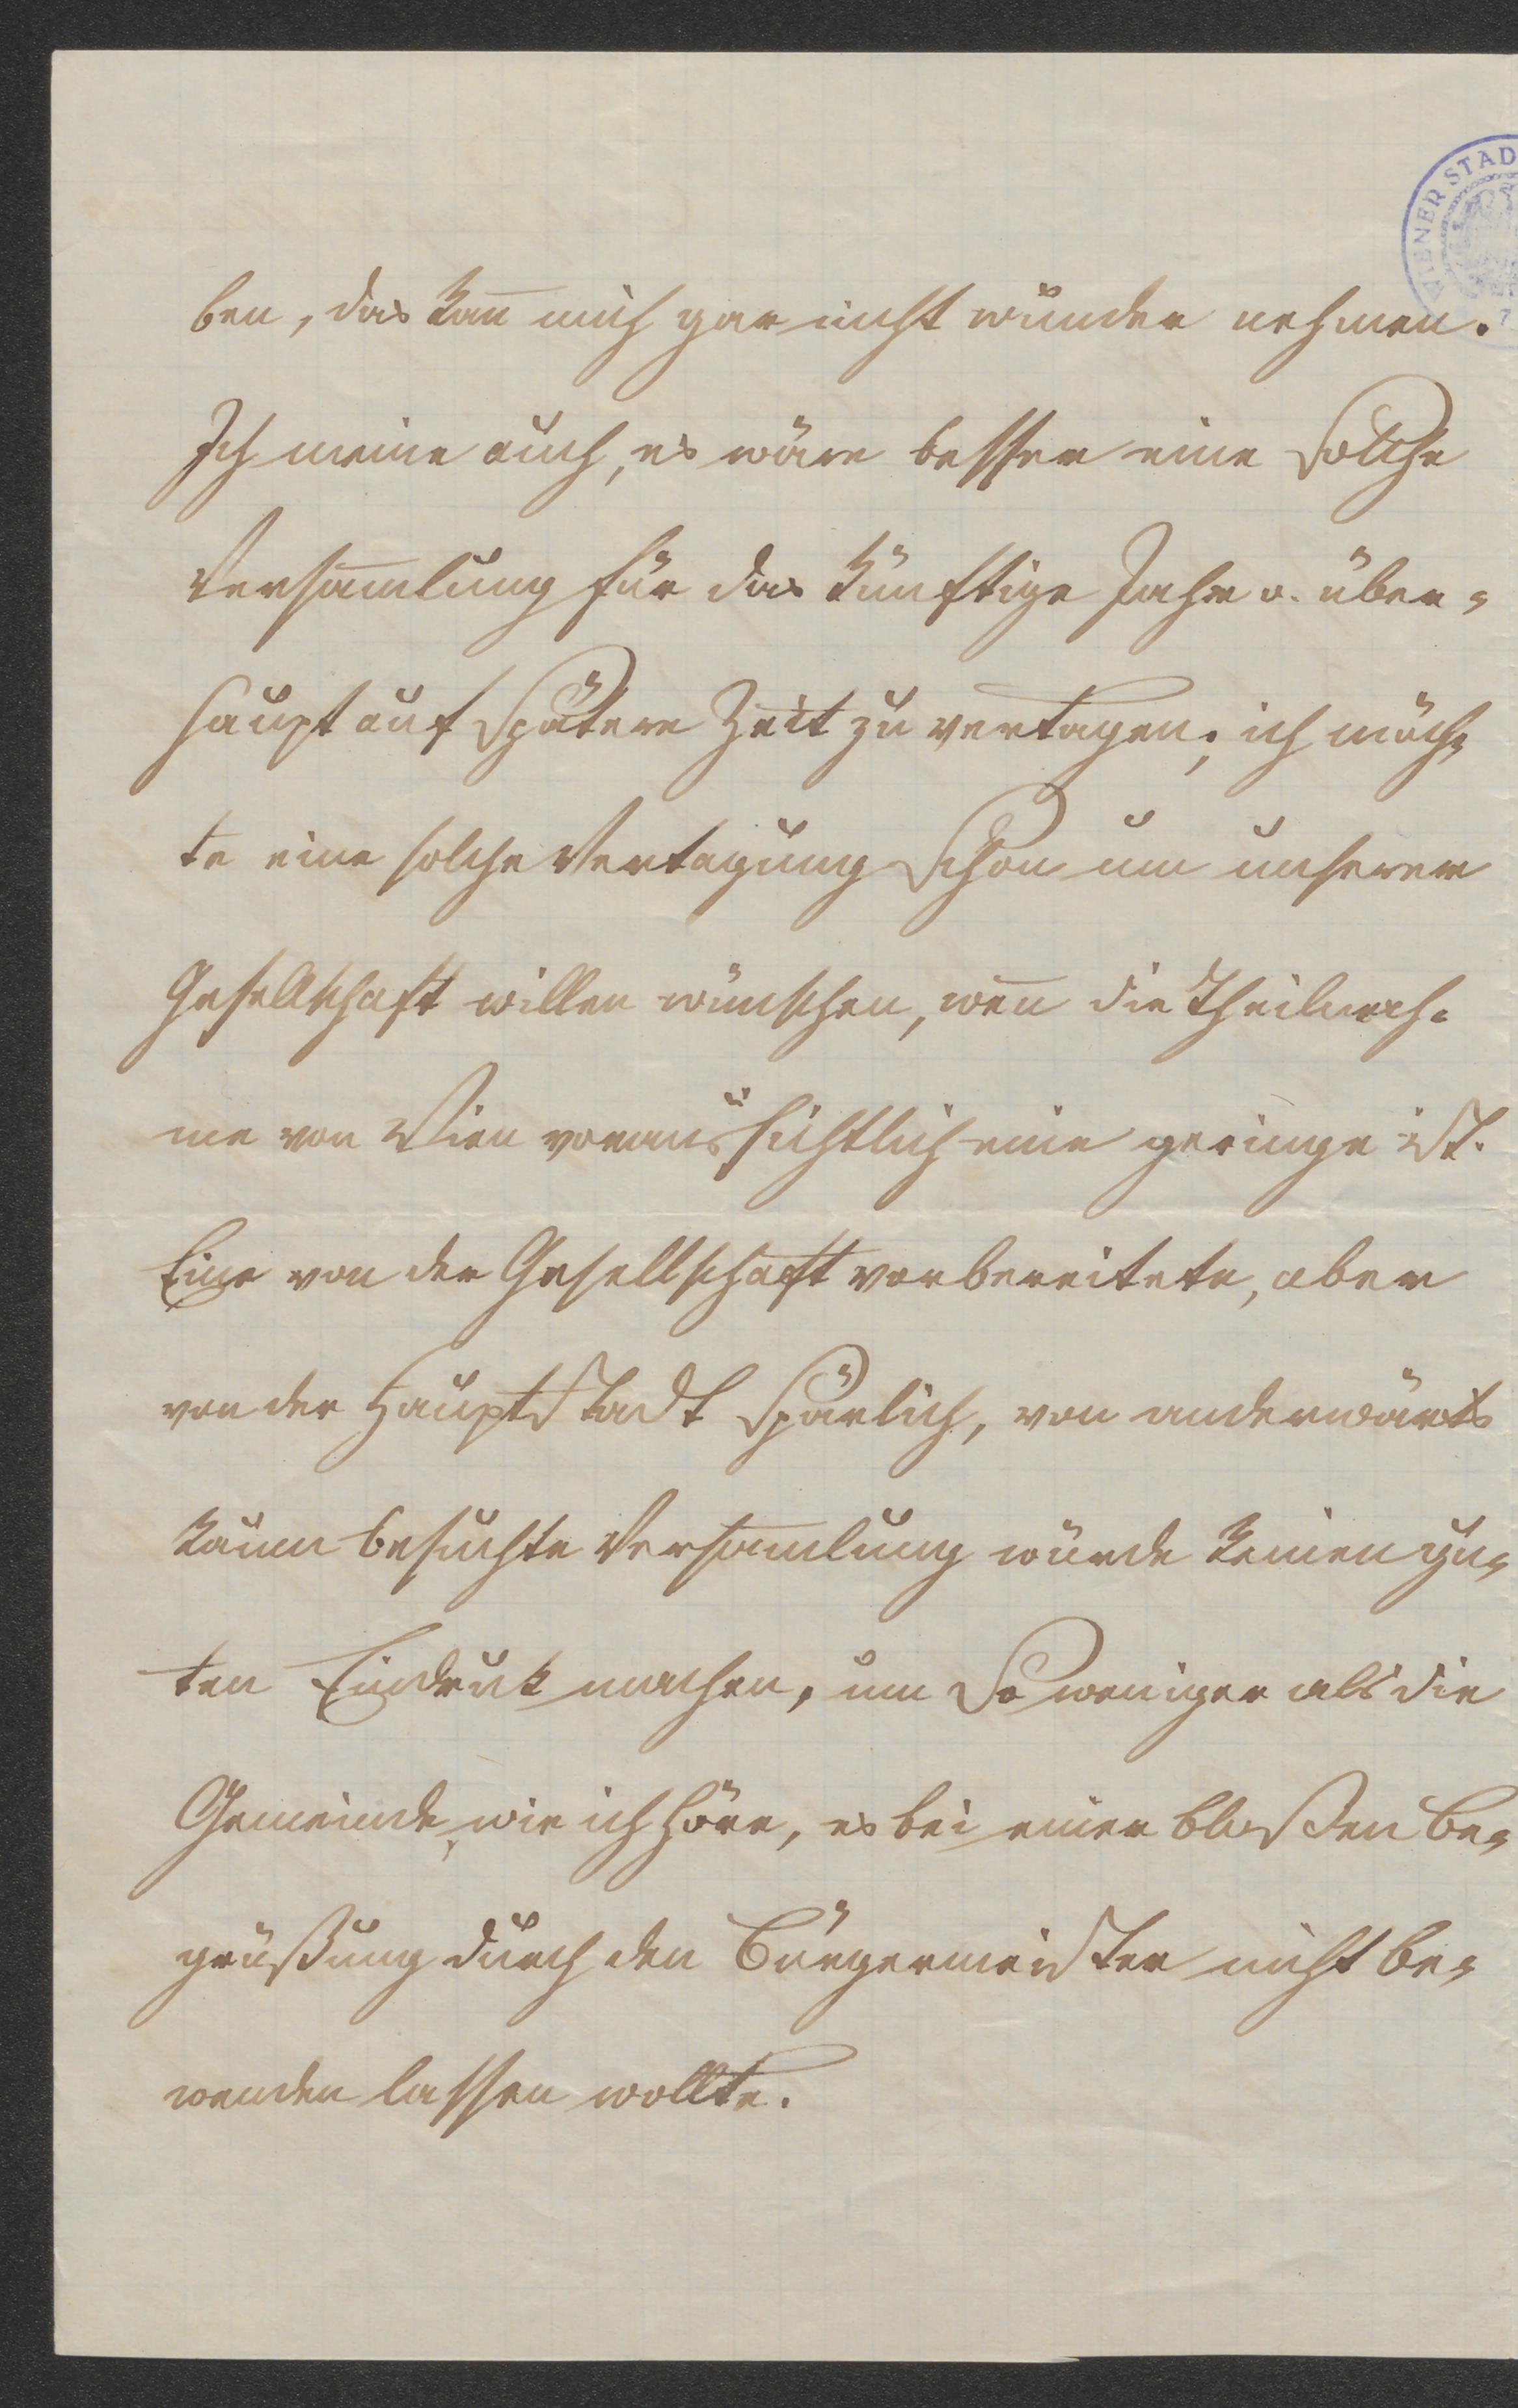 WIENER STAD
7
ben, das kan̄ mich gar nicht wunder nehmen.
Ich meine auch, es wäre besser eine solche
Versam̄lung für das künftige Jahr u. über-
haupt auf spätere Zeit zu vertagen; ich möch-
te eine solche Vertagung schon um unserer
Gesellschaft willen wünschen, wen̄ die Theilnah-
me von Wien voraussichtlich eine geringe ist.
Eine von der Gesellschaft vorbereitete, aber
von der Hauptstadt spärlich, von anderwärts
kaum besuchte Versam̄lung würde keinen gu-
ten Eindruk machen, um so weniger als die
Gemeinde, wie ich höre, es bei einer bloßen Be-
grüßung durch den Bürgermeister nicht be-
wenden lassen wollte.